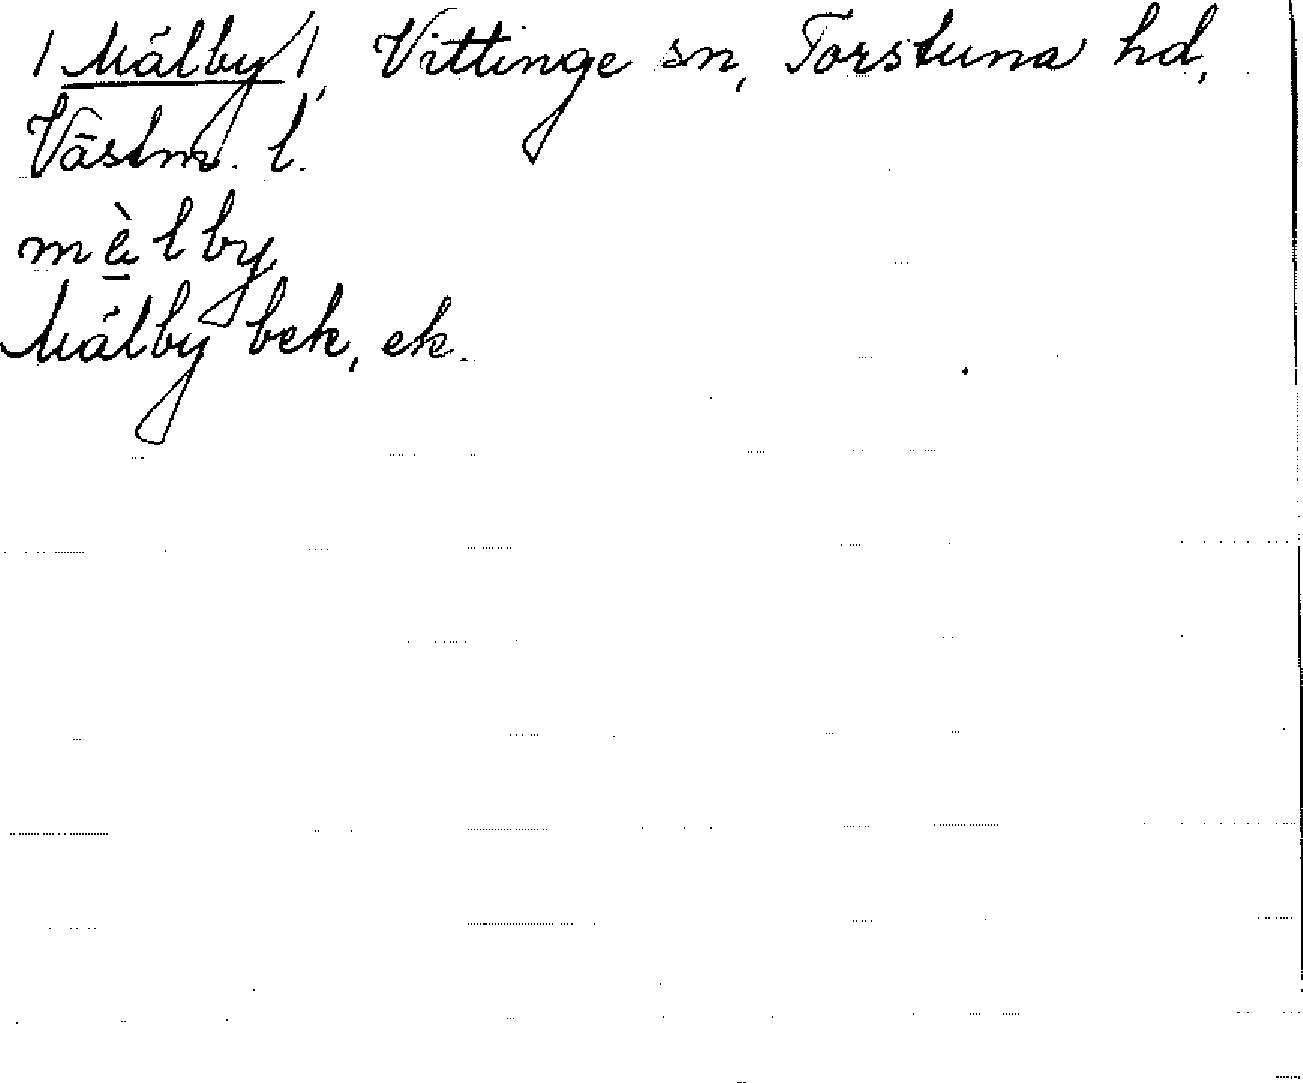 /Målby/, Vittinge sn, Torstuna hd,
Västm. l.
màlby
Målby bek, ek.